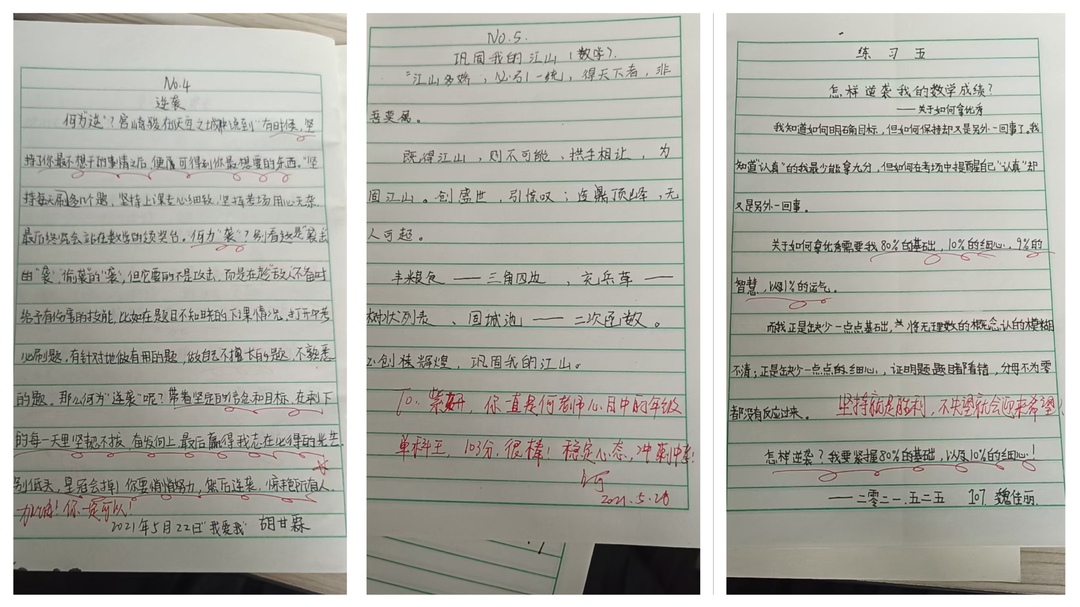 No.4
逆袭
何为"逆"？宫崎骏在《天空之城》中说到"有时候，坚
持了你最不想干的事情之后，便可得到你最想要的东西。"坚
持每天刷多几个题，坚持上课专心细致，坚持考场用心无杂，
最后终究会站在数学的领奖台。何为"袭"？别看这是"袭击"
由"袭"，偷袭的"袭"，但它要的不是攻击，而是在趁"敌人"不备时
给予有伤害的技能，比如在题目不知的下课情况，打开中考
必刷题，有针对地做有用的题，做自己不擅长的题，不熟悉
的题。那么何为"逆袭"呢？带着坚定的信念和目标，在剩下
的每一天里坚韧不拔，奋发向上，最后赢得我志在必得的光芒
别低头，皇冠会掉！你要悄悄努力，然后逆袭，惊艳所有人
加油！你一定可以！
2021年5月22日"我爱我" 胡甘霖
No.5.
巩固我的江山（数学）.
"江山多娇，必有一统，得天下者，非
吾莫属。
既得江山，则不可能，拱手相让，为
固江山。创盛世，引惊叹；造鼎顶峰，无
人可起。
丰粮食——三角四边，充兵草——
树状列表、固城池——二次函数。
必创楼辉煌，巩固我的江山。
To：紫妍，你一直是何老师心目中的年级
单科王，103分，很棒！稳定心态，冲刺中考！
何
2021.5.28
练习五
怎样逆袭我的数学成绩？
——关于如何拿优秀
我知道如何明确目标，但如何保持却又是另外一回事了。我
知道"认真"的我最少能拿九分，但如何在考场中提醒自己"认真"却
又是另外一回事。
关于如何拿优秀需要我80%的基础，10%的细心，9%的
智慧，以及1%的运气。
而我正是缺少一点点基础，将无理数的概念认的模糊
不清；正是缺少一点点的细心，证明题题目都看错，分母不为零
都没有反应过来。坚持就是胜利，不失望就会迎来希望！
怎样逆袭？我要紧握80%的基础，以及10%的细心！
——二零二一.五二五 107 魏佳丽.